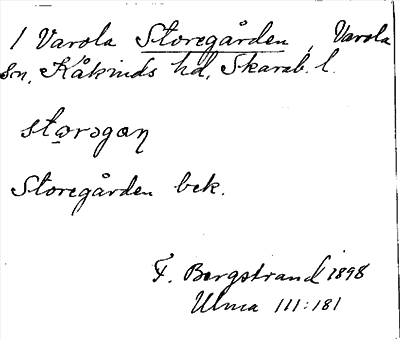 1 Varola Storegården, Varola
sn, Kåkinds hd, Skarab. l.
storəgaƞ
Storegården bek.
F. Bergstrand 1898
Ulma 111:181